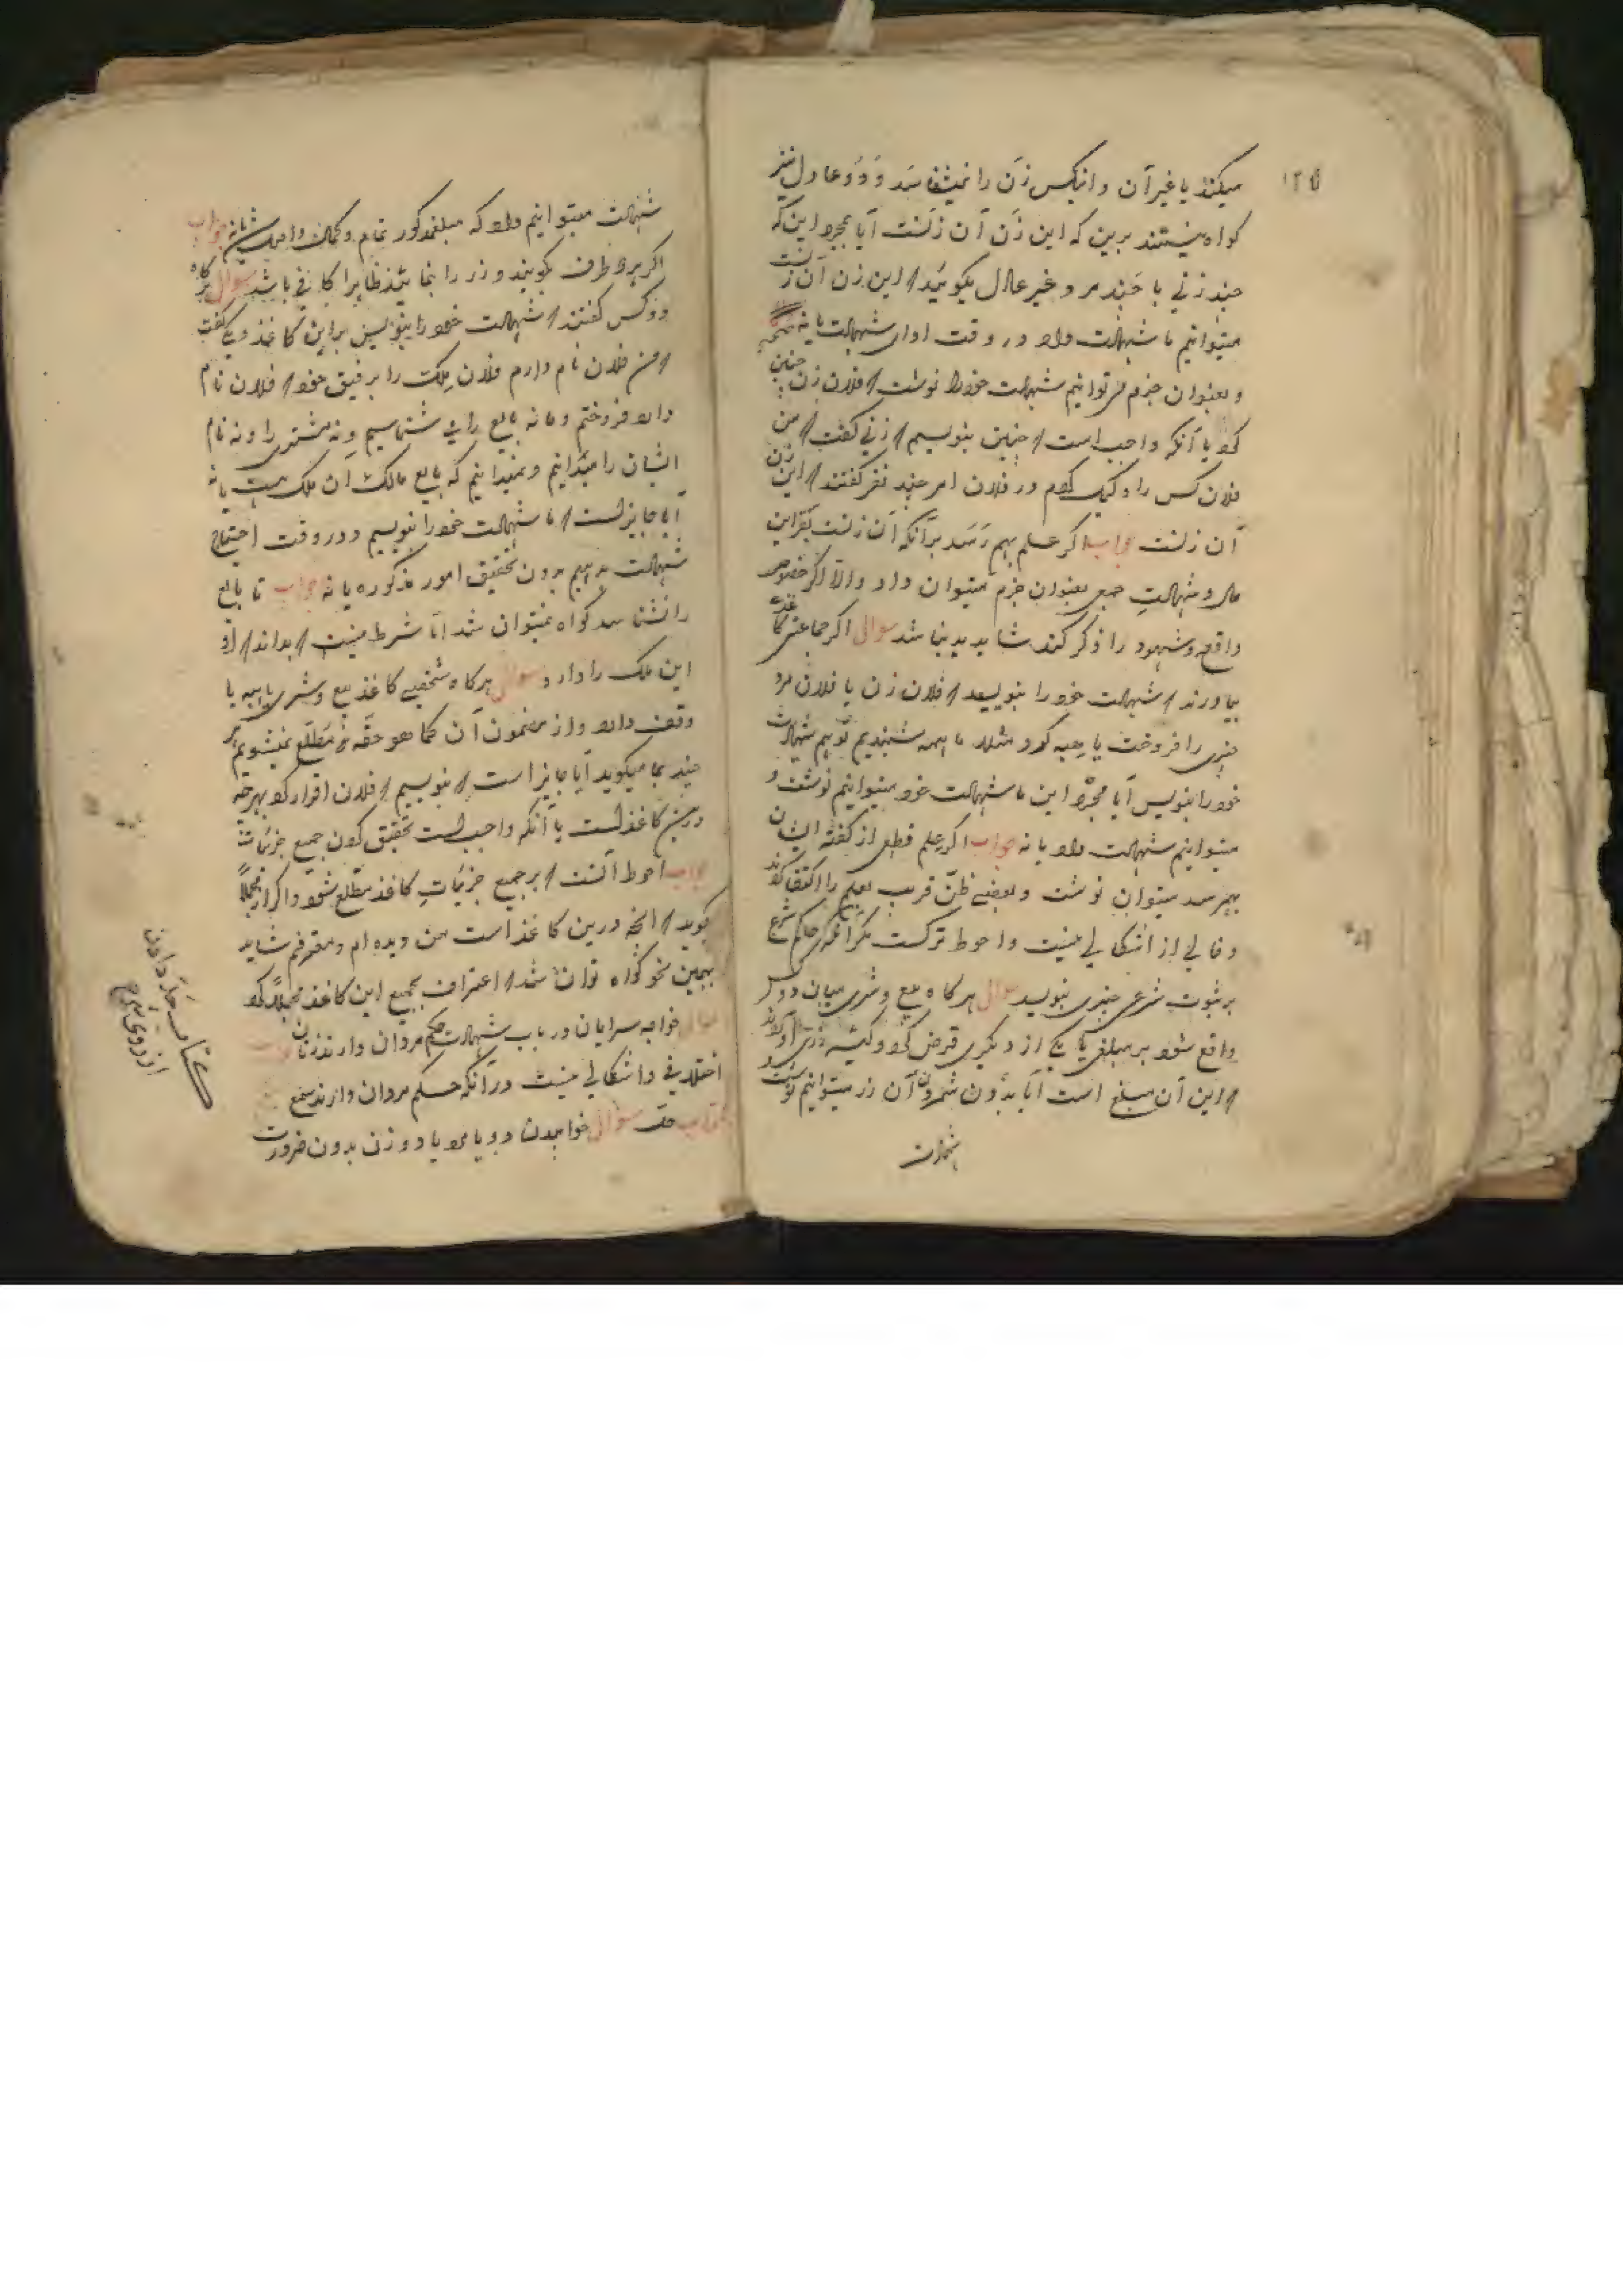 ۱۲۵
میکند یا غیر آن و انیکس زن را نمیشناسد و دو عادل نیز
کواه نیستند برین که این زن آن زنست آیا بمجرد این که
چند زنی یا چند مرد غیر عادل بکویند که این زن آن زنست
میتوانیم ما شهادت داد در وقت ادای شهادت یا نه
و بعنوان جزم میتوانیم شهادت خود را نوشت که فلان زن چنین
کرد یا آنکه واجب است که چنین بنویسیم که زنی کفت که من
فلان کس را وکیل کردم در فلان امر چند نفر کفتند که این زن
آن زنست جواب اکر علم بهم رسد بر آنکه آن زنست بقراین
حال و شهادت جمعی بعنوان جزم میتوان داد و الا اکر خصوص
واقعه و شهود را ذکر کند شاید بد نباشد سوال اکر جماعتی کاغذی
بیاورند که شهادت خود را بنویسید که فلان زن یا فلان مرد
چیزی را فروخت یا هبه کرد مثلا ما همه شنیدیم تو هم شهادت
خود را بنویس آیا بمجرد این ما شهادت خود میتوانیم نوشت و
میتوانیم شهادت داد یا نه جواب اکر علم قطعی از کفته ایشان
بهم رسد میتوان نوشت و بعضی ظن قریب بعلم را اکتفا کرده‌اند
و خالی از اشکالی نیست و احوط ترکست مکر آنکه حاکم شرع
بر ثبوت شرعی چیزی بنویسد سوال هر کاه بیع و شری میان دو کس
واقع شود بر مبلغی یا یکی از دیکری قرض کرد و کیسه زری آوردند
که این آن مبلغ است آیا بدون شمردن آن زر میتوانیم نوشت و
شهادت
شهادت میتوانیم داد که مبلغ مذکور تمام و کمال واصل شد یا نه جواب
اکر هر دو طرف بکویند و زر را بنمایند ظاهرا کافی باشد سوال هر کاه
دو کس کفتند که شهادت خود را بنویس بر این کاغذ و یکی کفت
که من فلان نام دارم فلان ملک را برفیق خود که فلان نام
دارد فروختم و ما نه بایع را می شناسیم و نه مشتری را و نه نام
ایشان را میدانیم و نمیدانیم که بایع مالک آن ملک هست یا نه
آیا جایز است که ما شهادت خود را بنویسیم و در وقت احتیاج
شهادت بدهیم بدون تحقیق امور مذکوره یا نه جواب تا بایع
را نشناسد کواه نمیتوان شد اما شرط نیست که بداند که او
این ملک را دارد سوال هر کاه شخصی کاغذ بیع و شری یا هبه یا
وقف دارد و از مضمون آن کما هو حقه مطلع نمیشویم هر
چند بما میکوید آیا جایز است که بنویسیم که فلان اقرار کرد بهر چه
درین کاغذ است یا آنکه واجب است تحقیق کردن جمیع جزئیاتش
جواب احوط آنست که بر جمیع جزئیات کاغذ مطلع شود و اکر او مجملاً
بکوید که آنچه درین کاغذ است من دیده ام و معترفم شاید
بهمین نحو کواه توان شد که اعتراف بجمیع این کاغذ مجملاً کرد
سوال خواجه سرایان در باب شهادت حکم مردان دارند یا زنان جواب
اختلافی و اشکالی نیست در آنکه حکم مردان دارند
سوال خوابیدن دو یا مرد یا دو زن بدون ضرورت